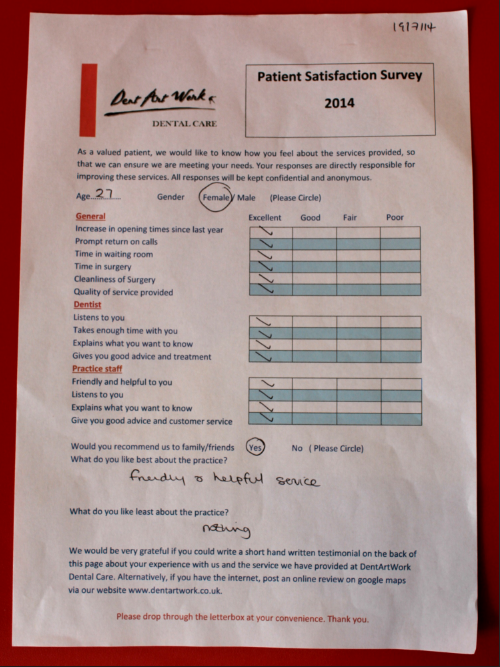 19/7/14
Dent Art Work
DENTAL CARE
Patient Satisfaction Survey
2014
As a valued patient, we would like to know how you feel about the services provided, so
that we can ensure we are meeting your needs. Your responses are directly responsible for
improving these services. All responses will be kept confidential and anonymous.
Age...27 Gender Female/ Male (Please Circle)
General Excellent Good Fair Poor
Increase in opening times since last year
Prompt return on calls
Time in waiting room
Time in surgery
Cleanliness of Surgery
Quality of service provided
Dentist
Listens to you
Takes enough time with you
Explains what you want to know
Gives you good advice and treatment
Practice staff
Friendly and helpful to you
Listens to you
Explains what you want to know
Give you good advice and customer service
Would you recommend us to family/friends Yes No ( Please Circle)
What do you like best about the practice?
friendly & helpful service
What do you like least about the practice?
nothing
We would be very grateful if you could write a short hand written testimonial on the back of
this page about your experience with us and the service we have provided at DentArtWork
Dental Care. Alternatively, if you have the internet, post an online review on google maps
via our website www.dentartwork.co.uk.
Please drop through the letterbox at your convenience. Thank you.